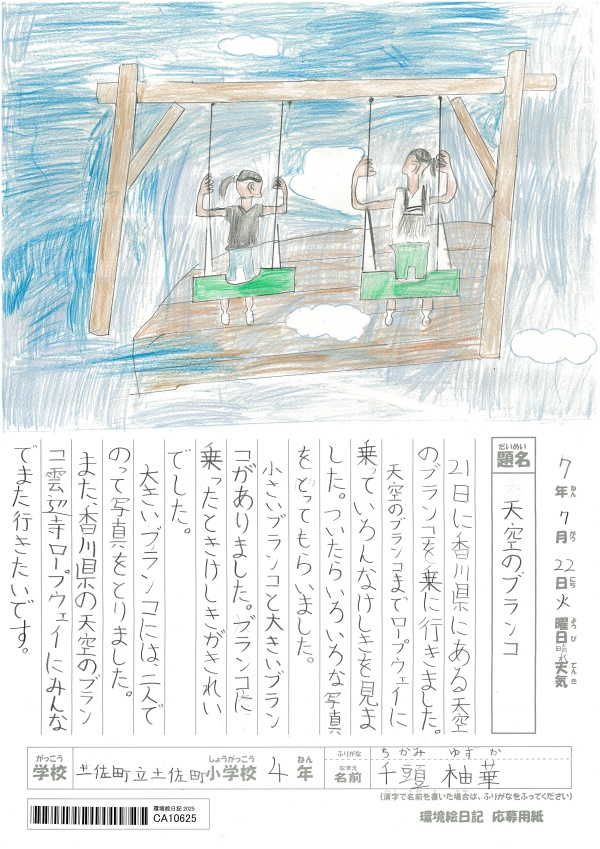 7年7月22日火曜日晴れ天気
ねん がつ にち ようび てんき
だいめい
題名
天空のブランコ
21日に香川県にある天空
のブランコを乗に行きました。
天空のブランコまでロープウェイに
乗っていろんなけしきを見ま
した。ついたらいろいろな写真
をとってもらいました。
小さいブランコと大きいブラン
コがありました。ブランコに
乗ったときけしきがきれい
でした。
大きいブランコには、二人で
のって写真をとりました。
また、香川県の天空のブラン
コ雲辺寺ロープウェイにみんな
でまた行きたいです。
がっこう しょうがっこう ねん
学校 土佐町立土佐町小学校 4年
ふりがな ちかみ ゆずか
なまえ
名前 千頭 柚華
(漢字で名前を書いた場合は、ふりがなをふってください)
環境絵日記 2025
CA10625
環境絵日記 応募用紙